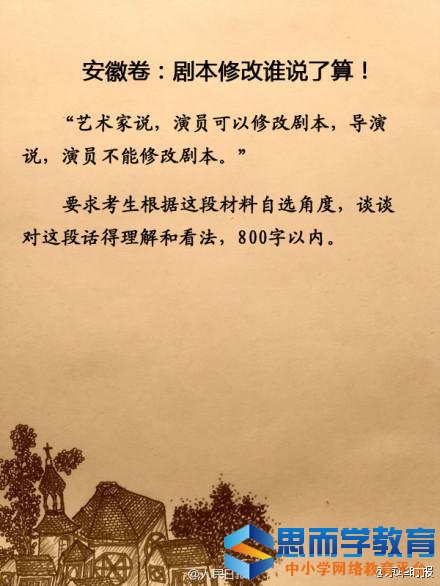 安徽卷：剧本修改谁说了算！
“艺术家说，演员可以修改剧本，导演
说，演员不能修改剧本。”
要求考生根据这段材料自选角度，谈谈
对这段话得理解和看法，800字以内。
思而学教育
中小学网络教育平台
@人民日报